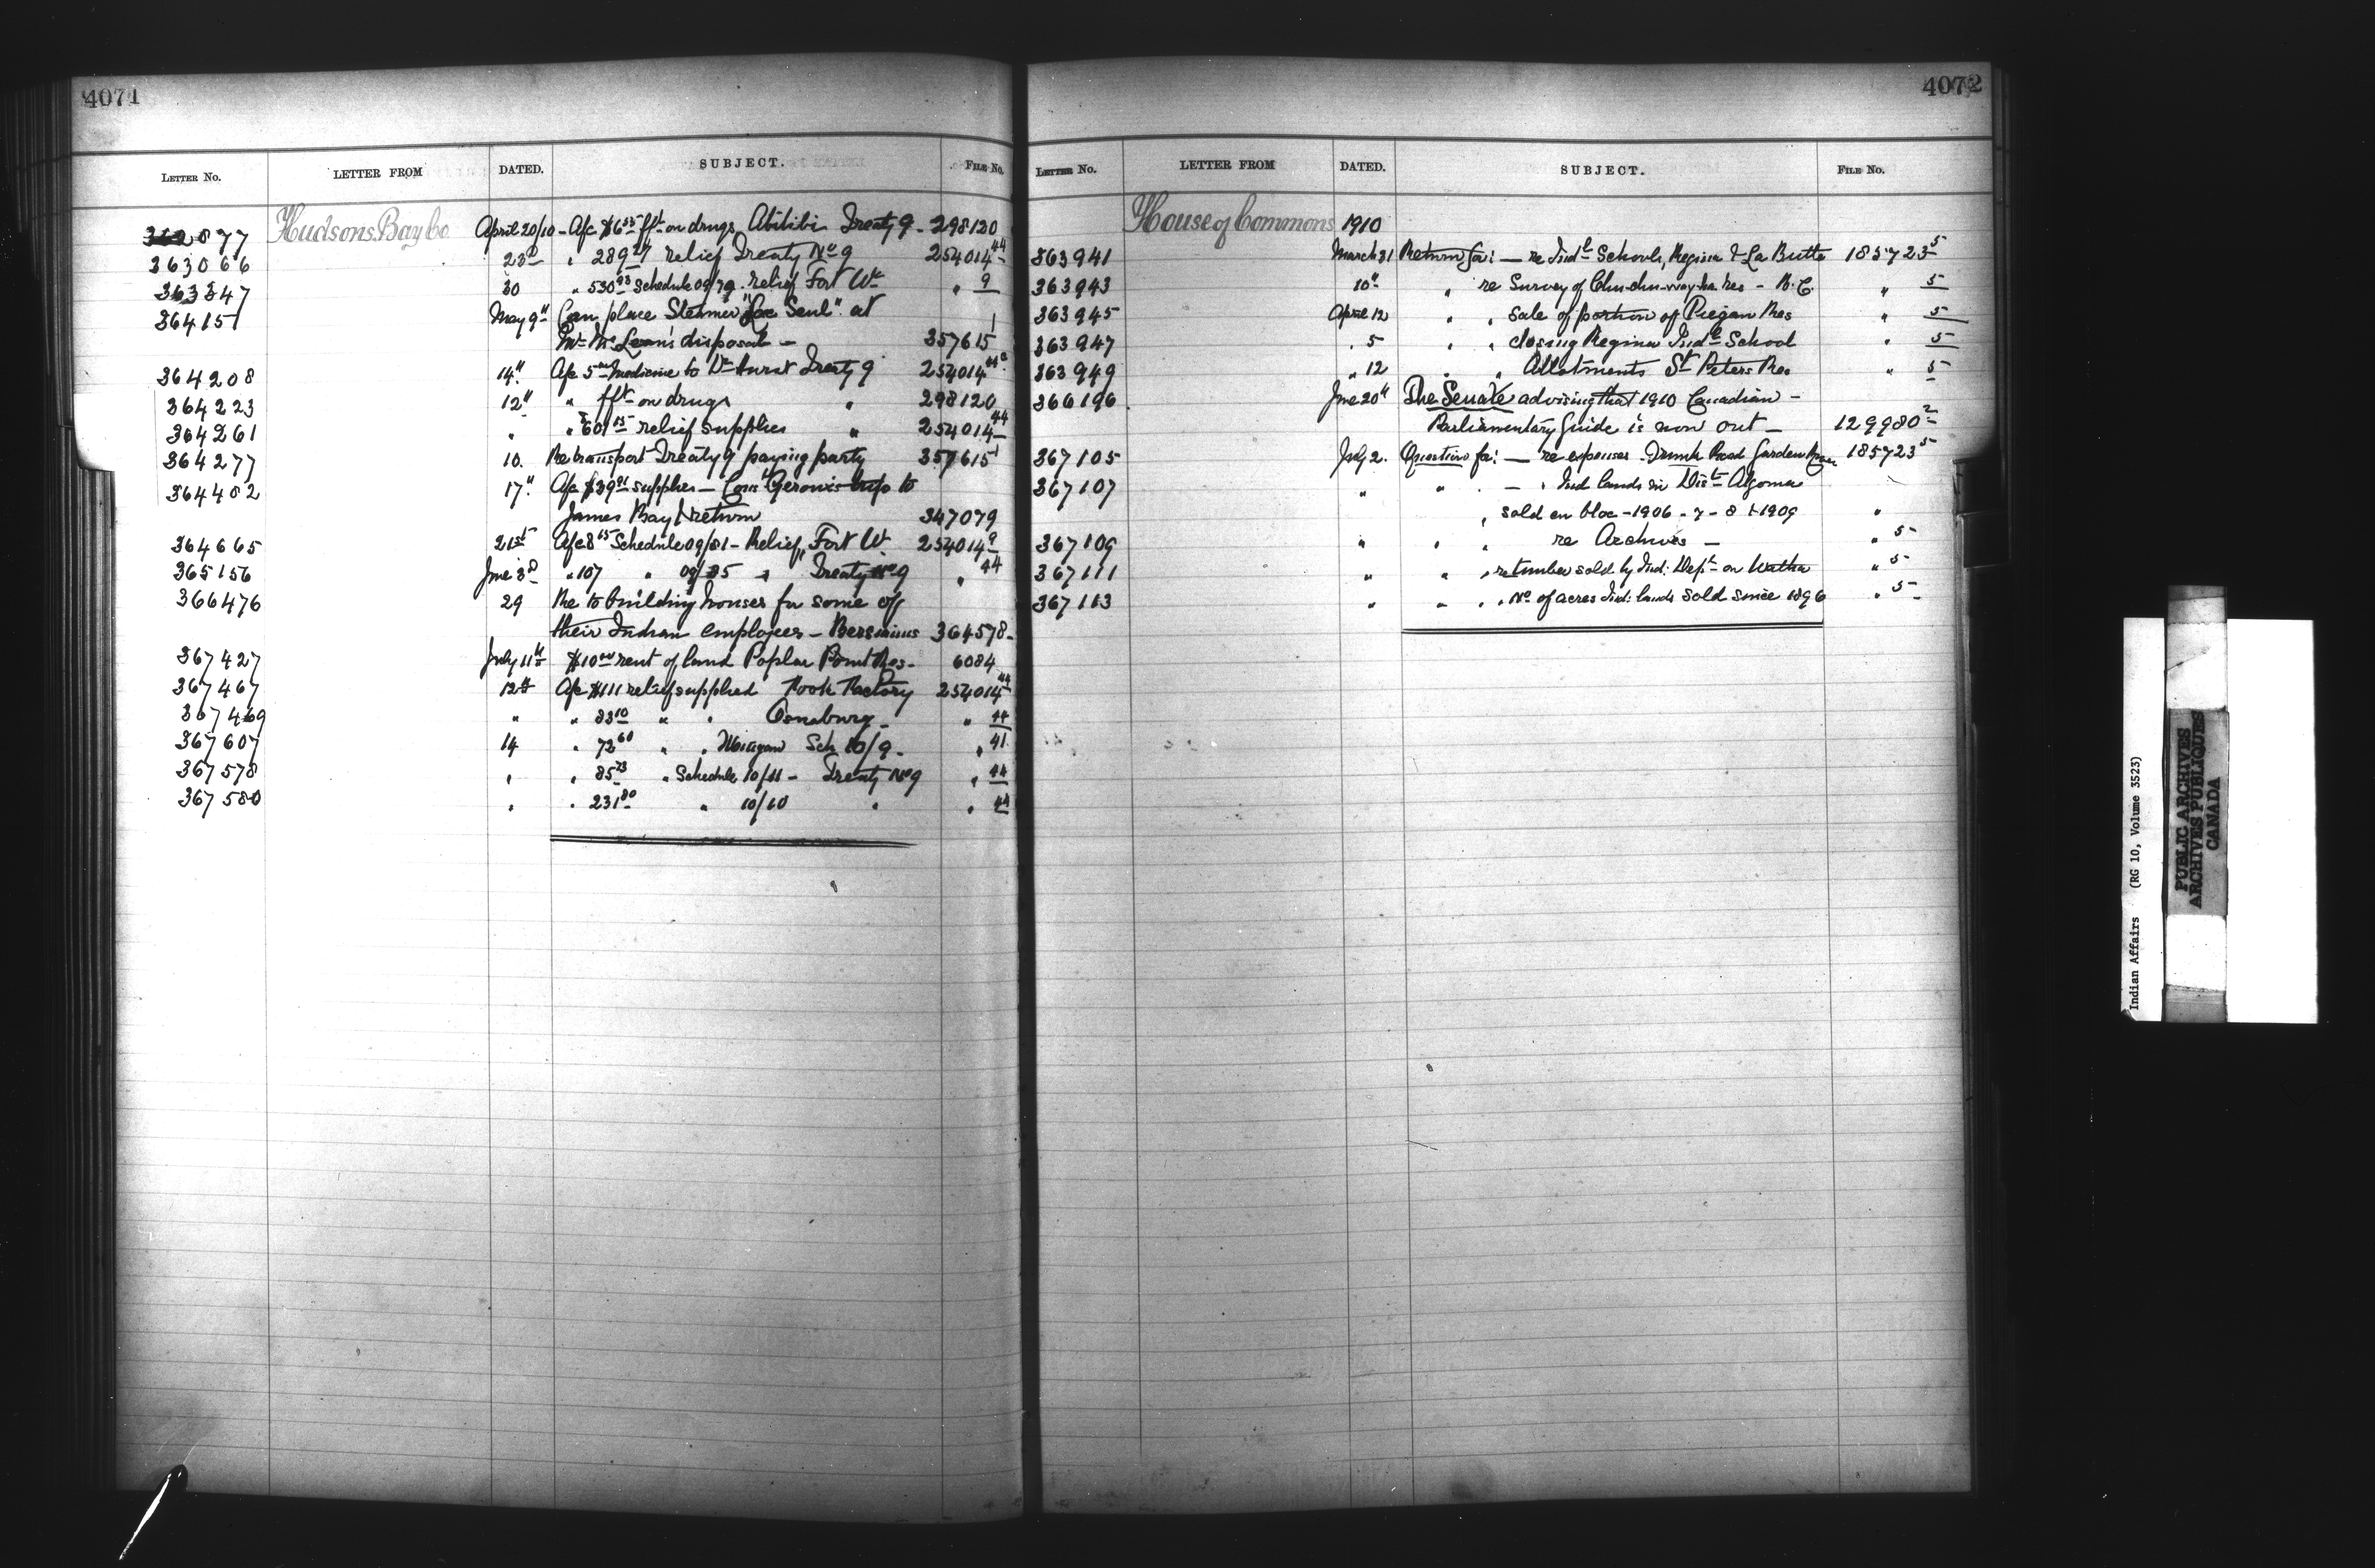 4071
LETTER No. LETTER FROM DATED. SUBJECT. FILE No.
362877 Hudsons Bay Co April 20/10 - A/c $6 55 fft on drugs, Abitibi Treaty 9 - 298120
363066 23d " 289 27 relief Treaty No 9 254014 44
363347 30 " 530 93 Schedule 09/79 relief Fort Wm " 9
364151 May 9th Can place Steamer "Lac Seul" at
Mr McLean's disposal - 357615 1
364208 14th A/c 5 Medicine to Dr Hurst Treaty 9 254014
364223 12th " fft on drugs " 298120
364261 " " 601 15 relief supplies " 254014 44
364277 10. Re transport Treaty 9 paying party 357615 1
364402 17th A/c $39 supplies - trip to
James Bay & return 347079
364665 21st A/c 8 65 Schedule 09/81 - Relief, Fort W. 254014 9
365156 June 3d " 107 " 09/85 " Treaty No 9 " 44
366476 29 Re to building houses for some of
their Indian employees - Bersimis 364578 -
367427 July 11th $10 rent of land Poplar Point Res - 6084
367467 12th A/c $111 relief supplied Moose Factory 254014 44
367469 " " 83 10 " " Osnaburg - " 44
367607 14 " 72 60 " " Sch 10/9 - " 41
367578 " " 85 73 " Schedule 10/11 - Treaty No 9 " 44
367580 " " 231 80 " 10/10 " " 44
4072
LETTER No. LETTER FROM DATED. SUBJECT. FILE No.
House of Commons 1910
363941 March 31 Return for: - re Indl Schools, Regina & La Butte 185723 5
363943 10th " re Survey of Chu-chu-way-ha Res - B.C. " 5
363945 April 12 " " Sale of portion of Piegan Res " 5
363947 " 5 " " closing Regina Indl School " 5
363949 " 12 " " Allotments St Peters Res " 5
366196 June 20th The Senate advising that 1910 Canadian -
Parliamentary Guide is now out - 129980 2
367105 July 2. Question for: - re expenses Trunk Road Garden River 185723 5
367107 " " - " Ind lands in Dist Algoma
" sold en bloc - 1906 - 7 - 8 & 1909 "
367109 " " " re Archives - " 5
367111 " " " re timber sold by Ind: Dept on " 5
367113 " " " " No of acres Ind: lands sold since 1896 " 5
Indian Affairs (RG 10, Volume 3523)
PUBLIC ARCHIVES
ARCHIVES PUBLIQUES
CANADA